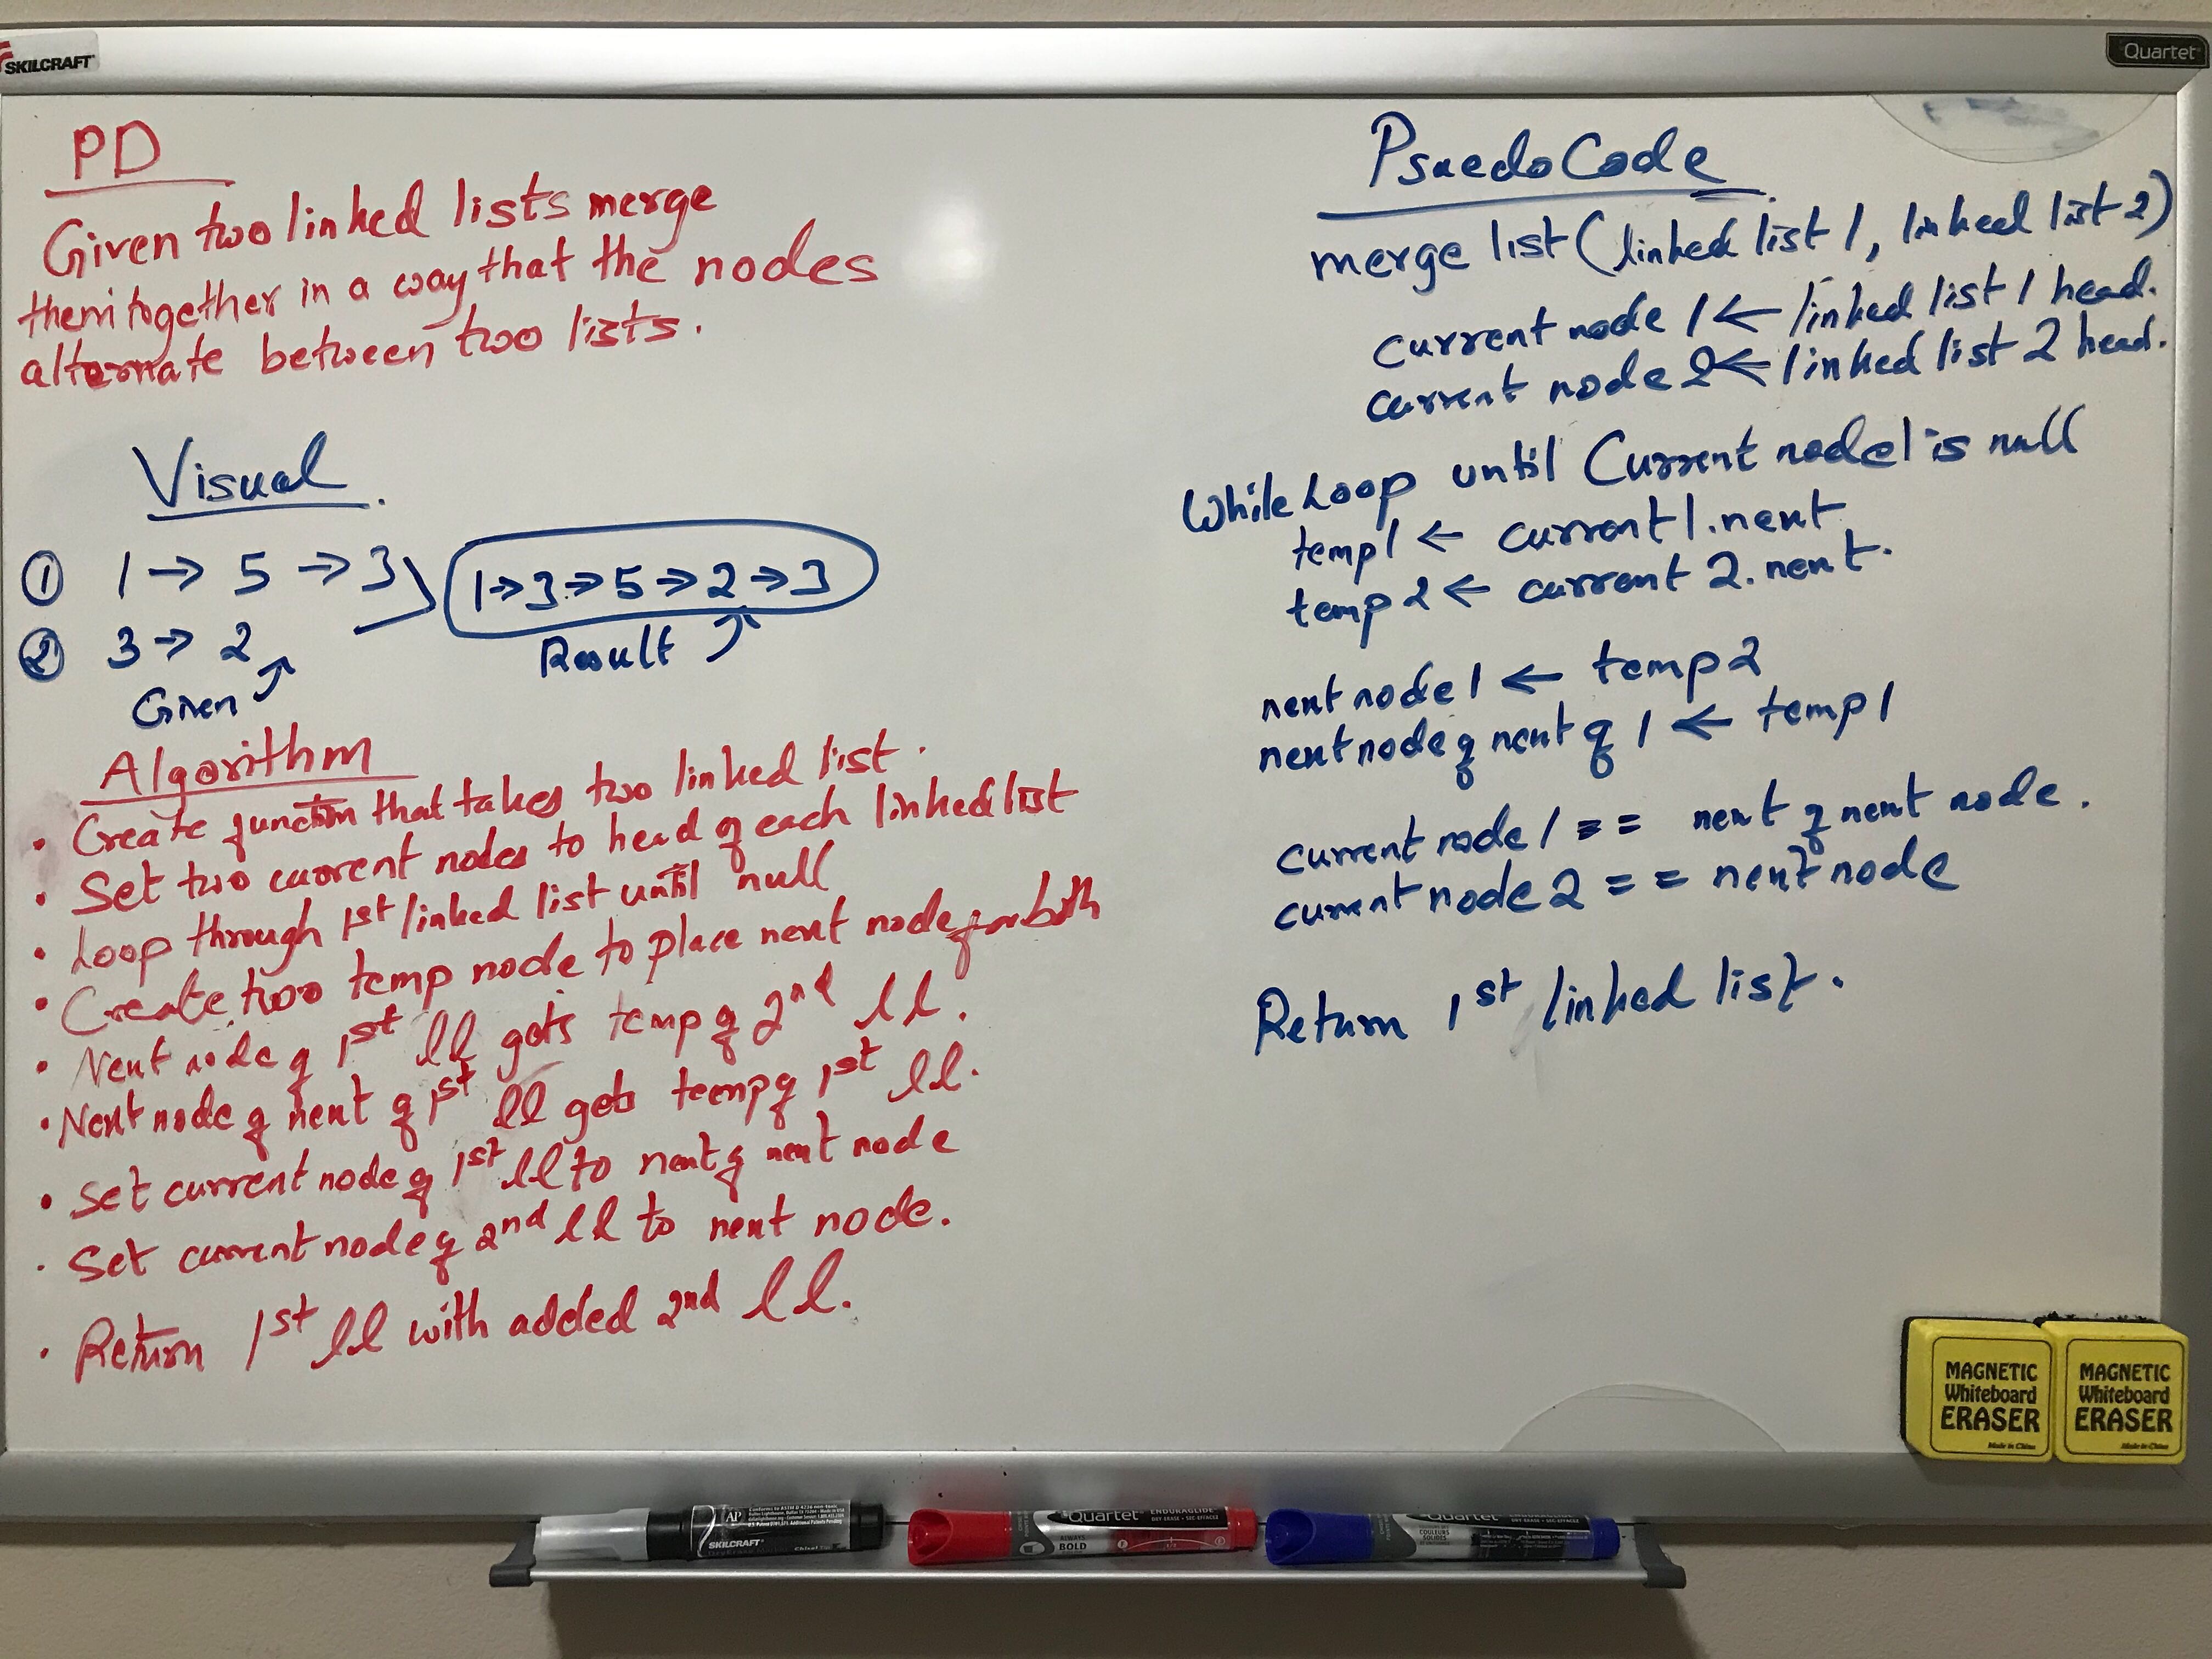 SKILCRAFT
Quartet
PD
Given two linked lists merge
them together in a way that the nodes
alternate between two lists.
Visual.
① 1 → 5 → 3
② 3 → 2
Given
1→3→5→2→3
Result
Algorithm
• Create function that takes two linked list.
• Set two current nodes to head of each linked list
• Loop through 1st linked list until null
• Create two temp node to place next node for both
• Next node of 1st ll gets temp of 2nd ll.
• Next node of next of 1st ll gets temp of 1st ll.
• Set current node of 1st ll to next of next node
• Set current node of 2nd ll to next node.
• Return 1st ll with added 2nd ll.
Psuedo Code
merge list (linked list 1, linked list 2)
current node 1 ← linked list 1 head.
current node 2 ← linked list 2 head.
While Loop until Current node 1 is null
temp 1 ← current 1.next
temp 2 ← current 2.next.
next node 1 ← temp 2
next node of next of 1 ← temp 1
current node 1 == next of next node.
current node 2 == next node
Return 1st linked list.
MAGNETIC
Whiteboard
ERASER
Made in China
MAGNETIC
Whiteboard
ERASER
Made in China
AP
SKILCRAFT
Chisel Tip
Quartet
ENDURAGLIDE
DRY-ERASE • SEC-EFFACEZ
ALWAYS
BOLD
Quartet
ENDURAGLIDE
DRY-ERASE • SEC-EFFACEZ
COULEURS
SOLIDES